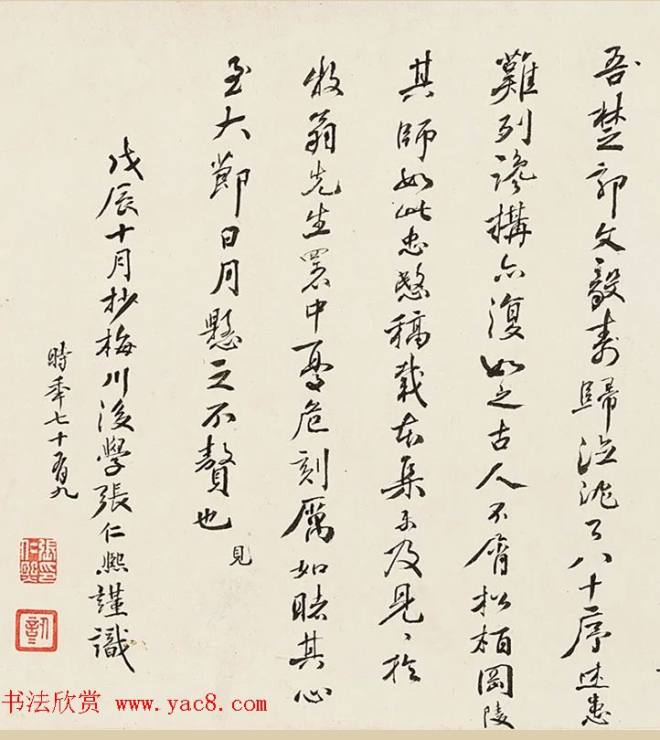 吾楚郭文毅寿歸沱八十序述患
難列讒構亦復如之古人不屑松柏岡陵
其師如此忠愍稿載本集未及見、於
牧翁先生署中憂危刻厲如睹其心
至大節日月懸之不贅也
見
戊辰十月抄梅川後學張仁熙謹識
時年七十有九
張仁熙印
书法欣赏 www.yac8.com